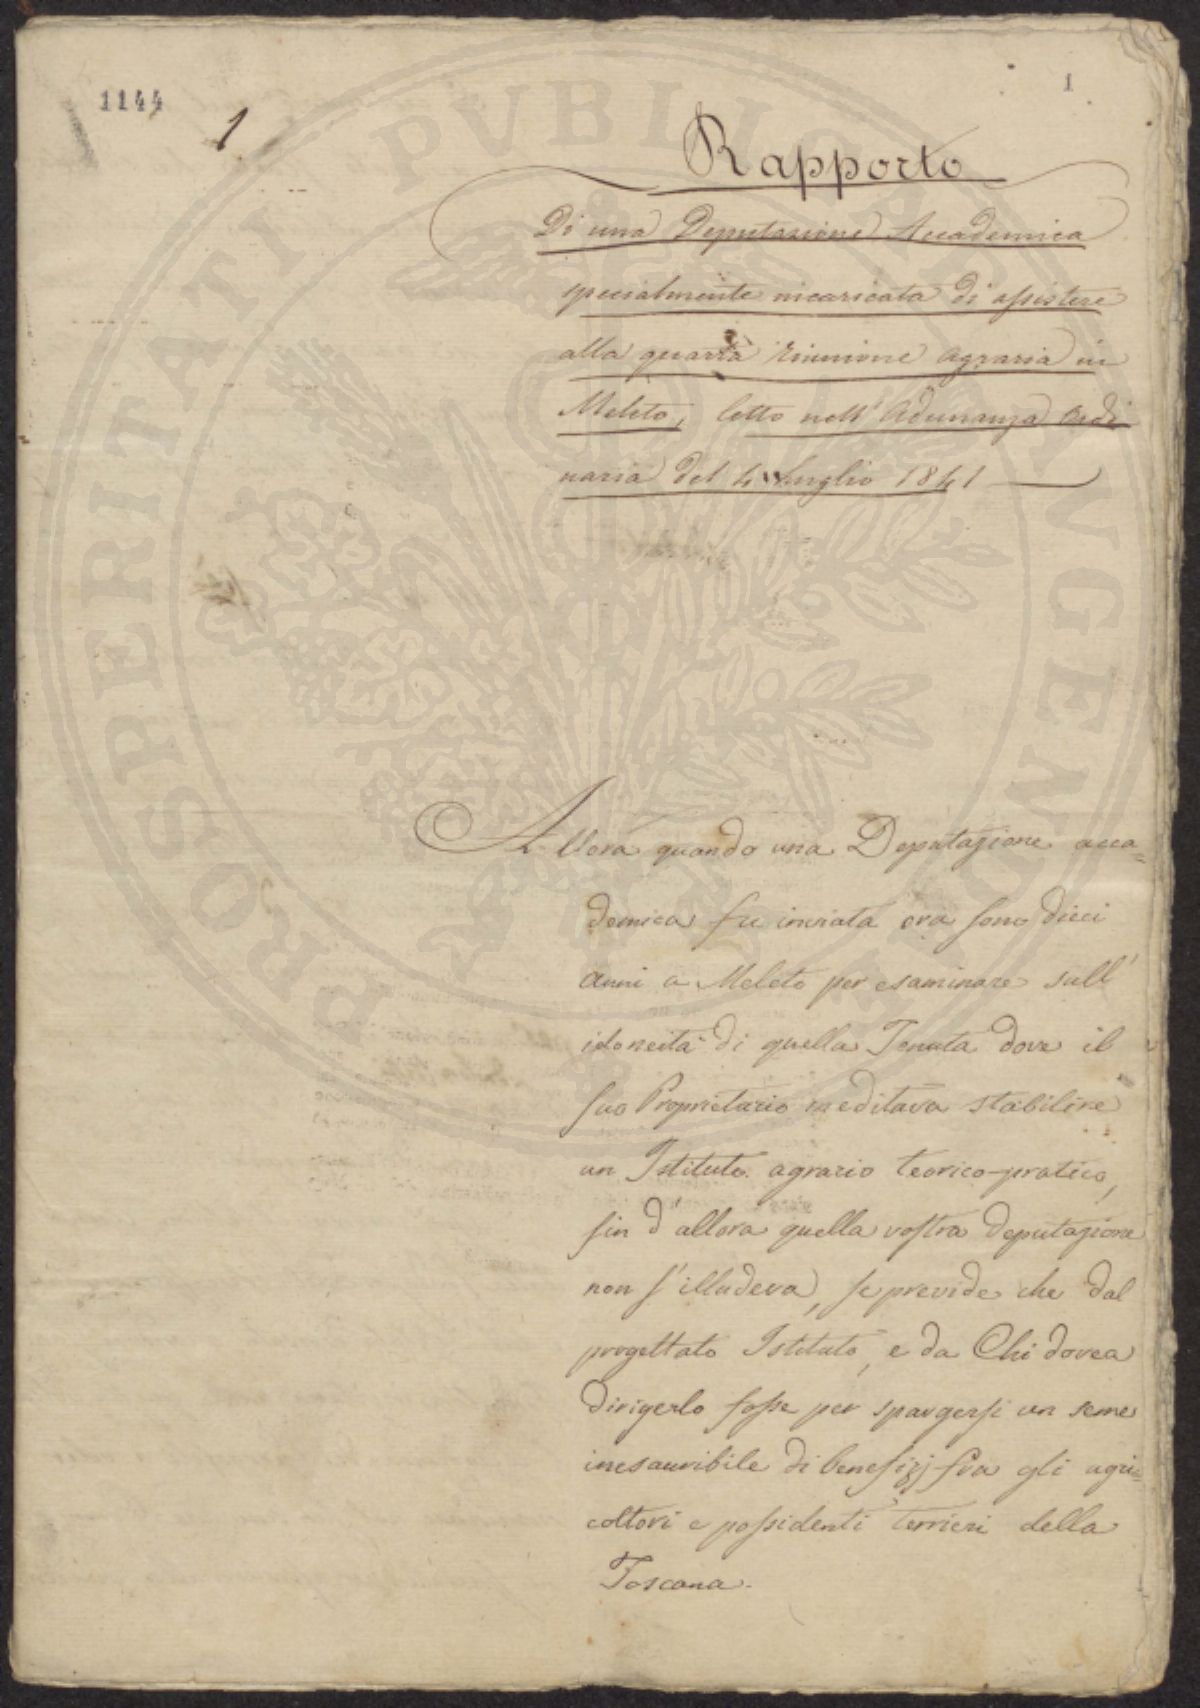 1144
1
1
Rapporto
Di una Deputazione Accademica
specialmente incaricata di assistere
alla quarta riunione agraria in
Meleto, letto nell' Adunanza Ordi
naria del 4 Luglio 1841
Allora quando una Deputazione acca=
demica fu inviata ora sono dieci
anni a Meleto per esaminare sull'
idoneità di quella Tenuta dove il
suo Proprietario meditava stabilire
un Istituto agrario teorico-pratico,
sin d'allora quella vostra deputazione
non s'illudeva, se previde che dal
progettato Istituto, e da Chi dovea
dirigerlo fosse per spargersi un seme
inesauribile di benefizj fra gli agri=
coltori e possidenti terrieri della
Toscana.
PROSPERITATI PVBLICAE AVGENDAE